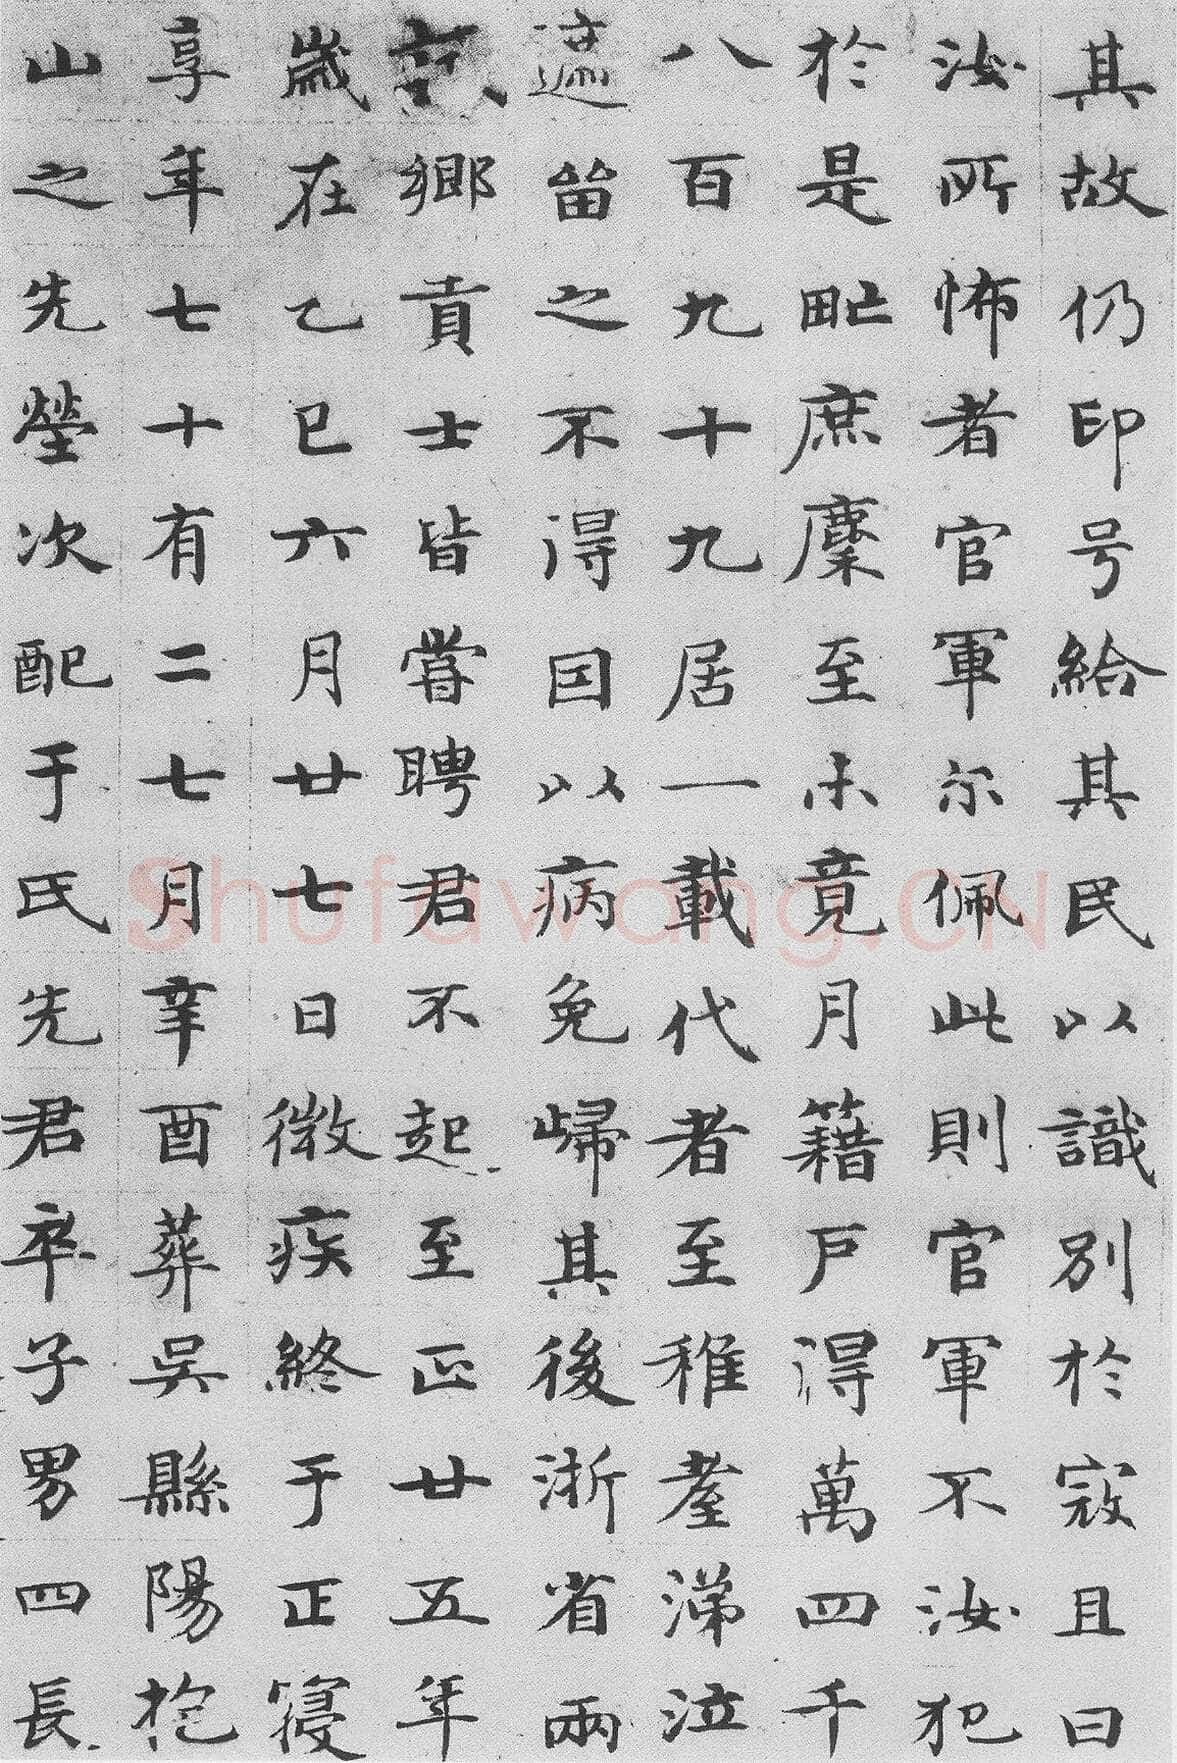 其故仍印号給其民以識別於寇且曰
汝所怖者官軍尔佩此則官軍不汝犯
於是甿庶麇至未竟月籍戸得萬四千
八百九十九居一載代者至稚耋涕泣
遮留之不得因以病免歸其後浙省兩
試鄉貢士皆嘗聘君不起至正廿五年
歲在乙巳六月廿七日微疾終于正寢
享年七十有二七月辛酉葬吳縣陽抱
山之先塋次配于氏先君卒子男四長
Shufawang.CN